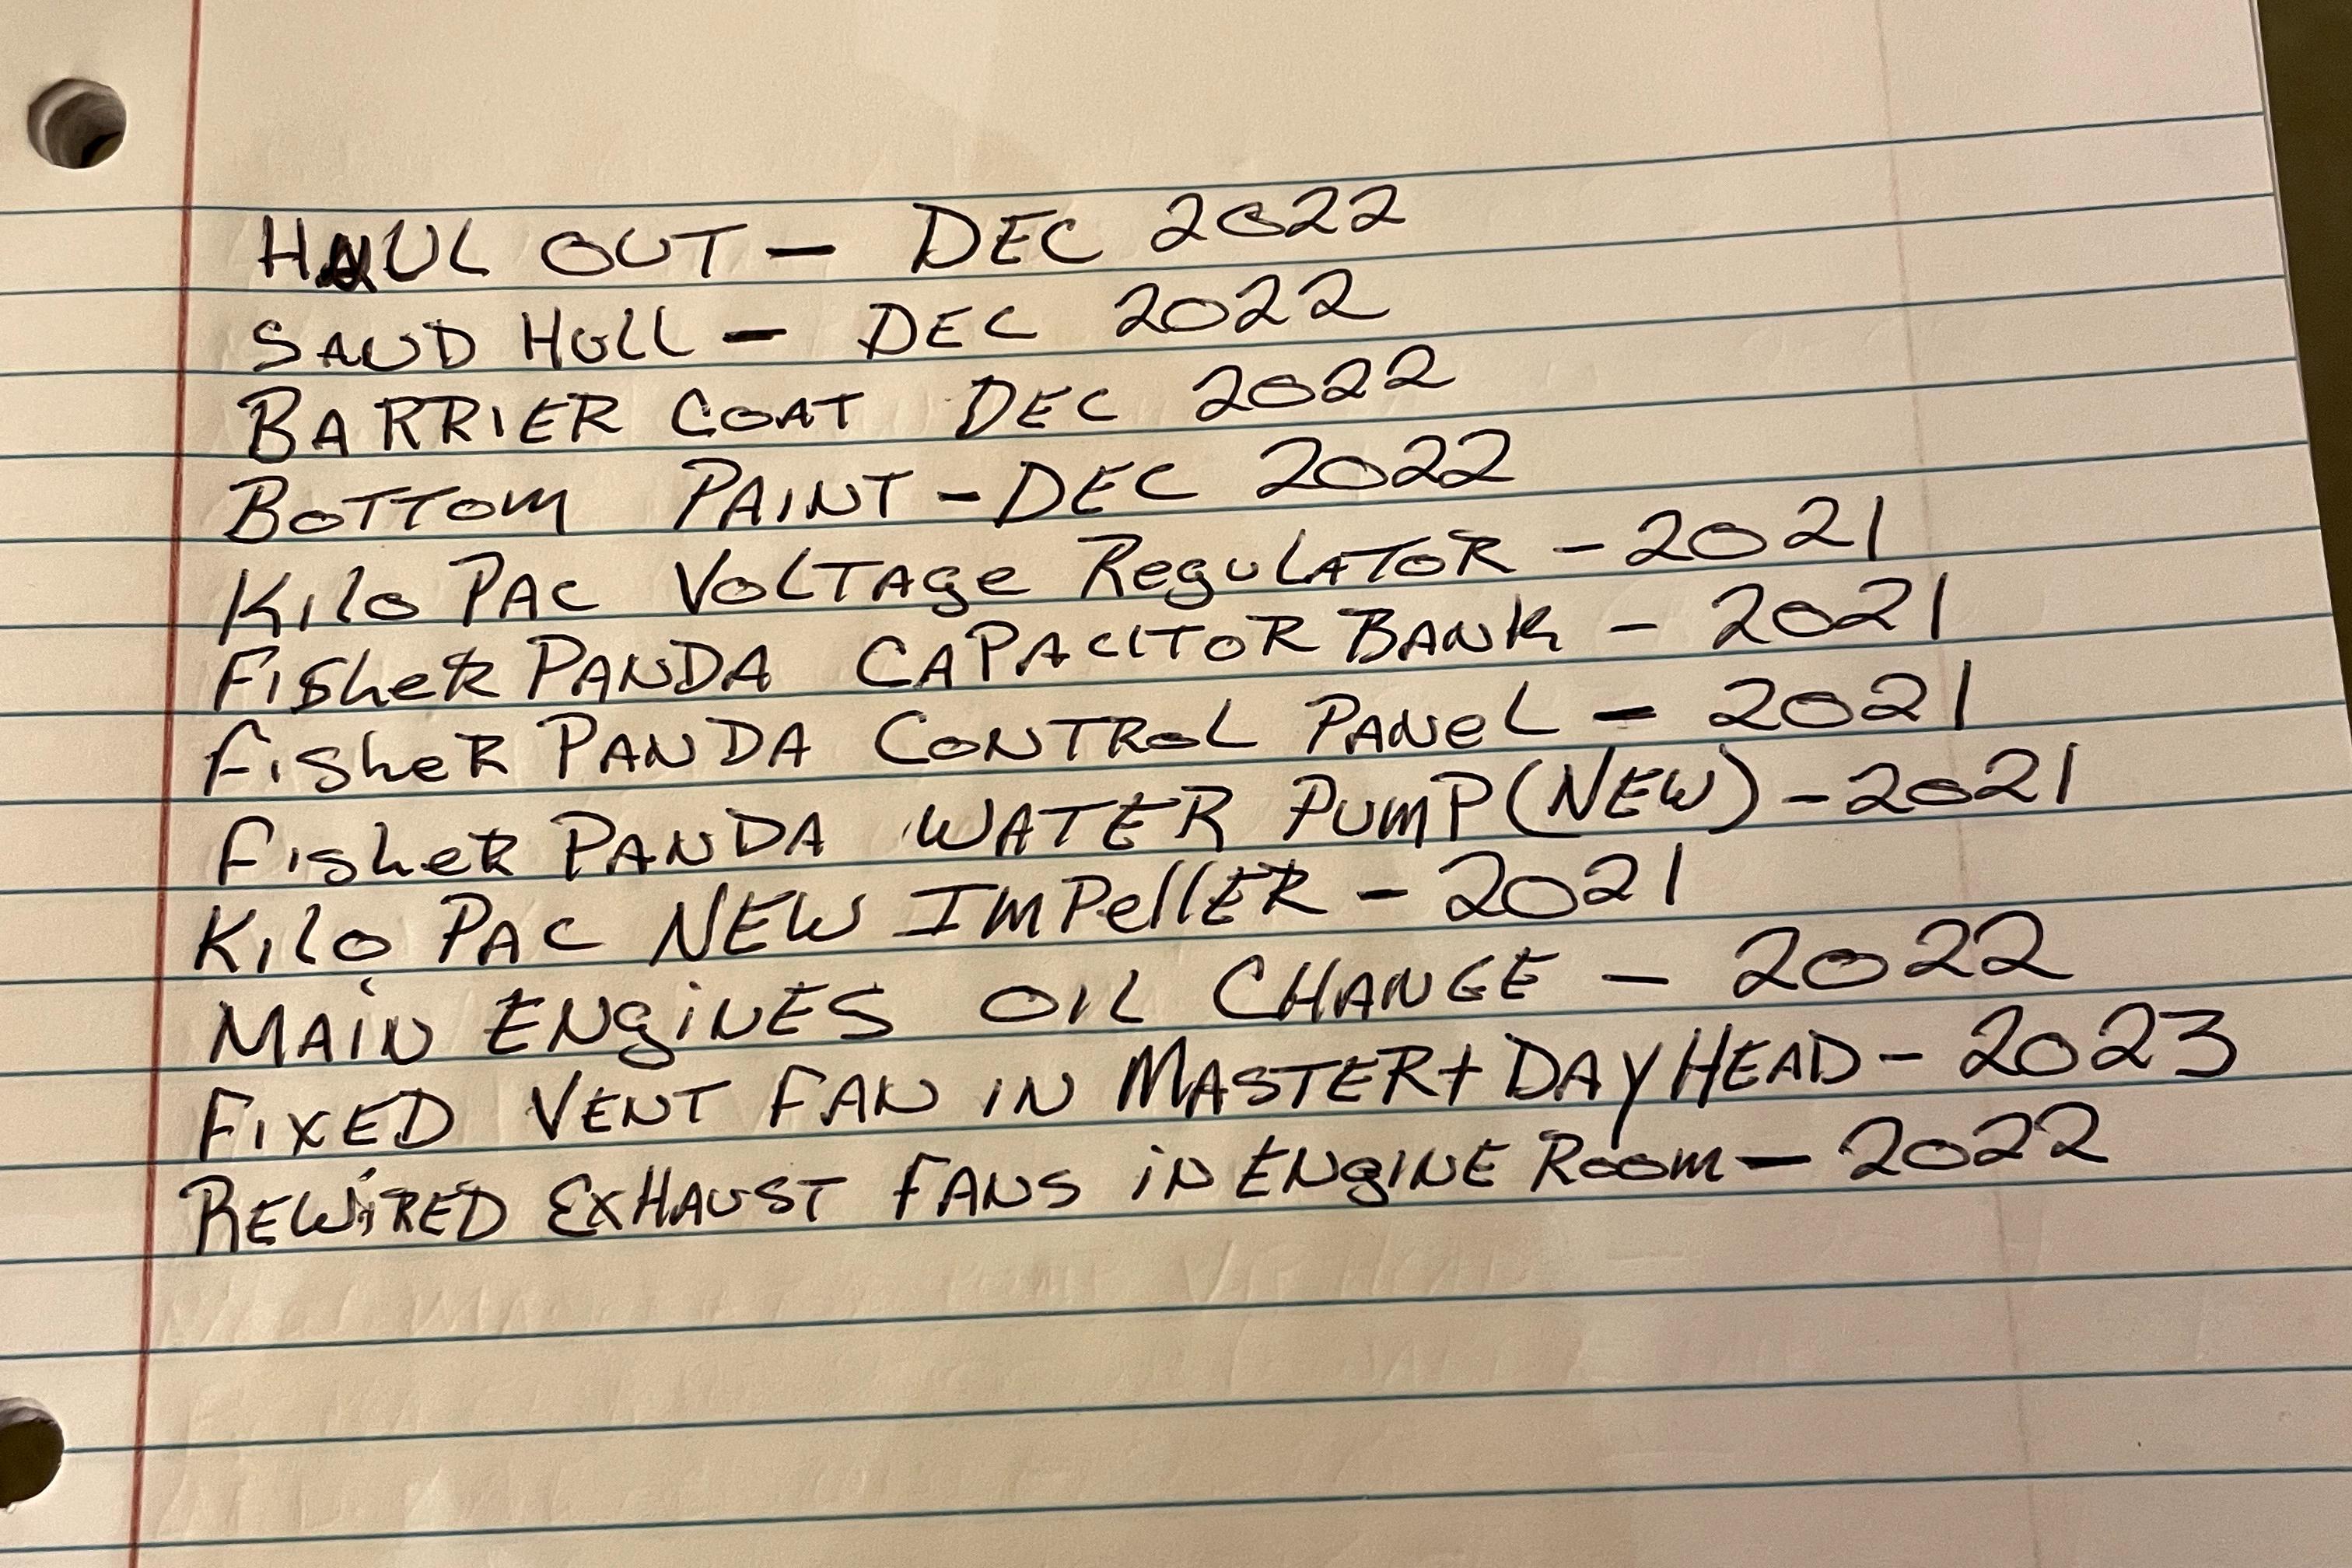 HAUL OUT - DEC 2022
SAND HULL - DEC 2022
BARRIER COAT DEC 2022
BOTTOM PAINT - DEC 2022
Kilo PAC VOLTAge RegULATOR - 2021
FisheR PANDA CAPACITOR BANK - 2021
FisheR PANDA CONTROL PANeL - 2021
FisheR PANDA WATER PUMP (NEW) - 2021
Kilo PAC NEW IMPellER - 2021
MAiN ENgiNES OIL CHANGE - 2022
FIXED VENT FAN IN MASTER + DAY HEAD - 2023
REWiRED EXHAUST FANS iN ENgINE ROOM - 2022